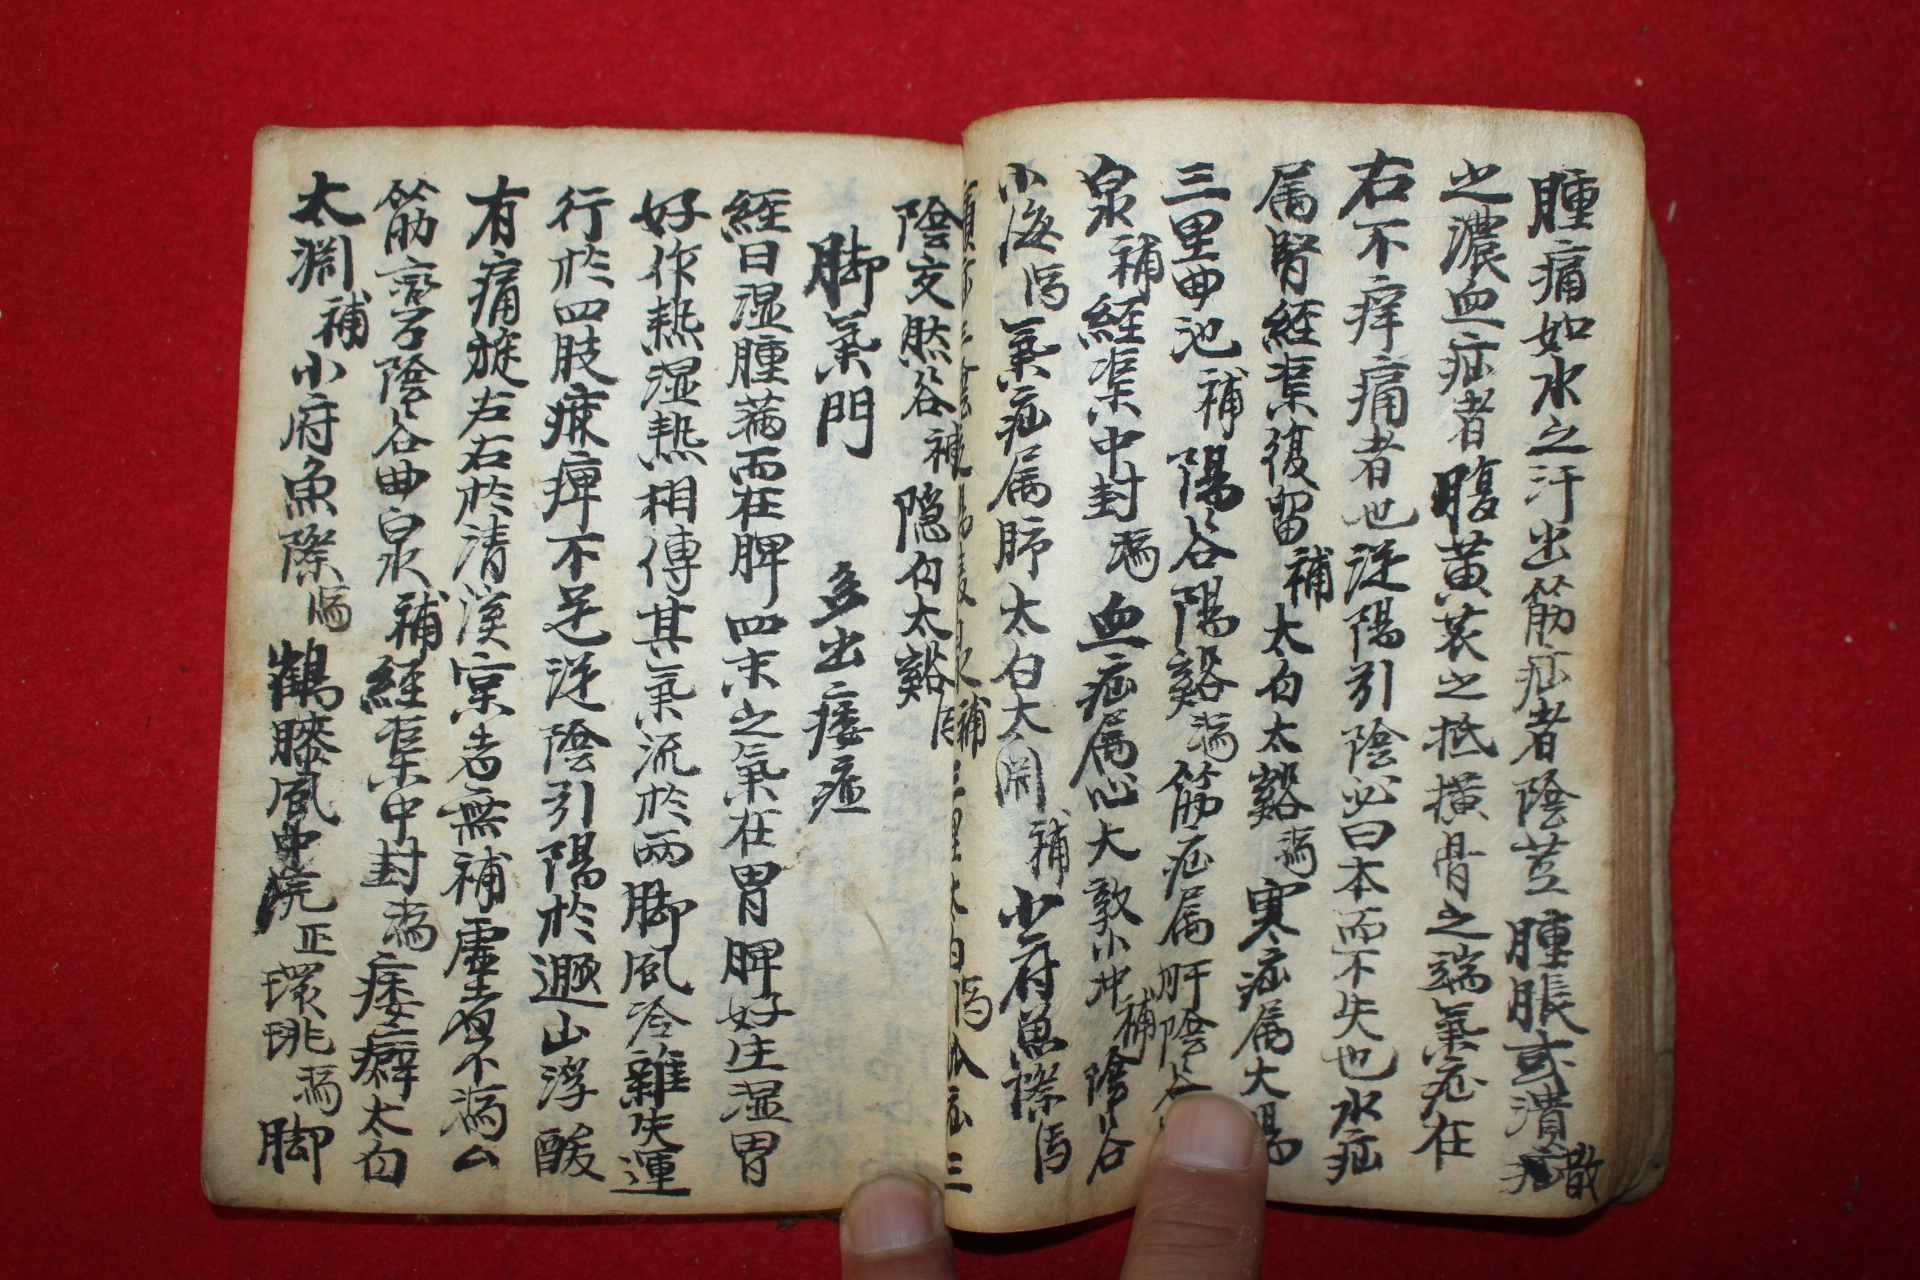 腫痛如水之汗出筋疝者陰莖腫脹或潰散
之濃血疝者腹黃衣之抵橫骨之端氣疝在
右不痒痛者也逆陽引陰必曰本而不失也水疝
属腎經渠復留補太白太谿瀉寒疝属大腸
三里曲池補陽谷陽谿瀉筋疝属肝陰谷
泉補經渠中封瀉血疝属心大敦小冲補陰谷
小海瀉氣疝属肺太白太淵補少府魚際瀉
三里太白瀉狐疝三
陰交然谷補隐白太谿
脚氣門　多出痿症
經曰湿腫满而在脾四末之氣在胃脾好生湿胃
好作热湿热相傳其氣流於兩脚風冷雜失運
行於四肢痠痺不足逆陰引陽於遡山浮酸
有痛旋左右於清濱者無補虛者不瀉
筋陰谷曲泉補經渠中封瀉痿癖太白
太淵補小府魚際瀉鶴膝風中脘正環珧瀉脚